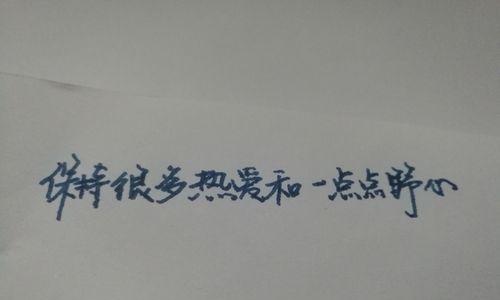 保持很多热爱和一点点野心